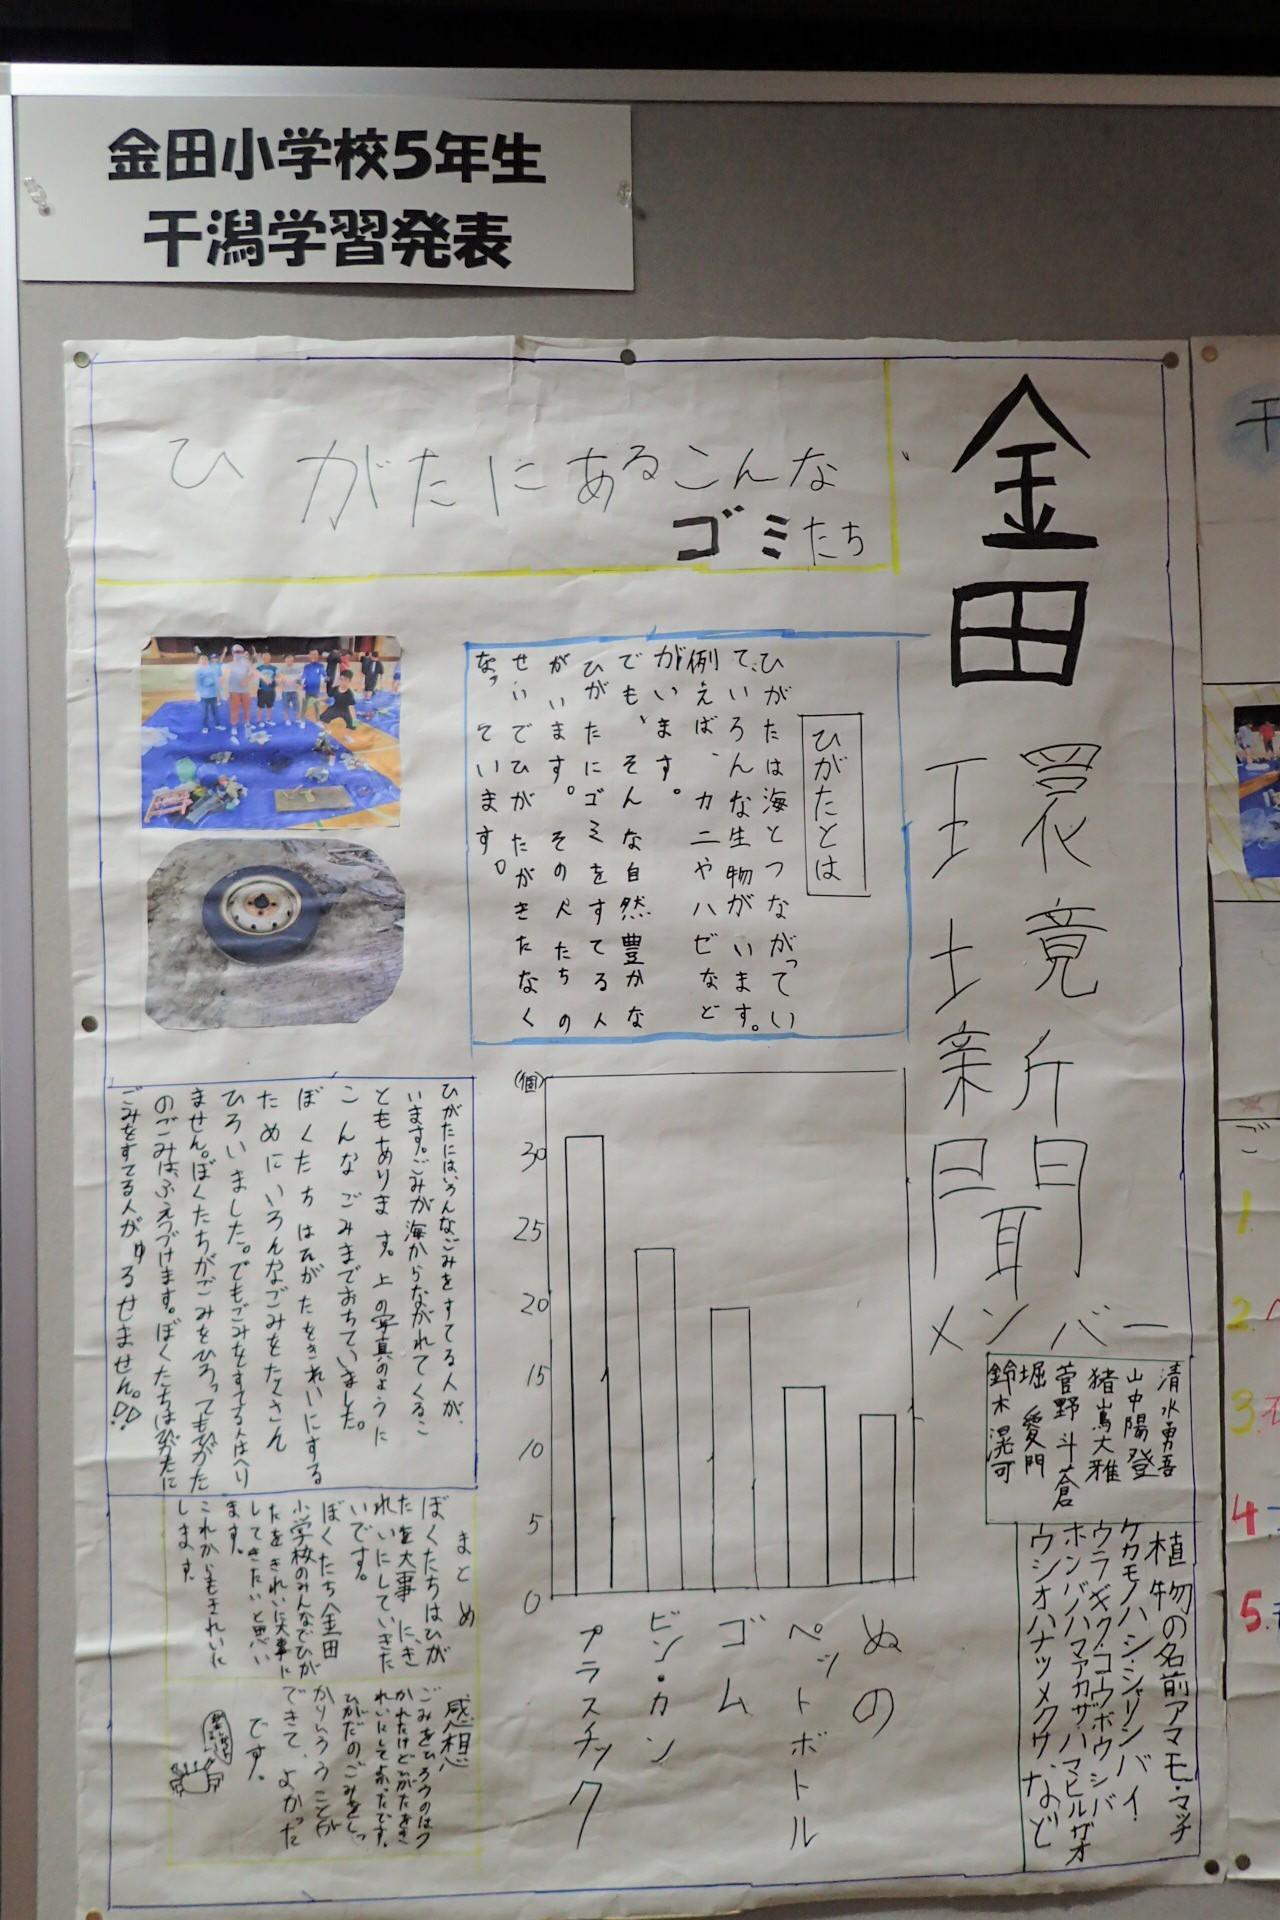 金田小学校5年生
干潟学習発表
金田環境新聞
ひがたにあるこんな
ゴミたち
ひがたとは
ひがたは海とつながってい
て、いろんな生物がいます。
例えば、カニやハゼなど
がいます。
でも、そんな自然豊かな
ひがたにゴミをすてる人
がいます。その人たちの
せいでひがたがきたなく
なっています。
メンバー
清水勇吾
山中陽登
猪嶌大雅
菅野斗蒼
堀愛門
鈴木滉可
植物の名前アマモ・マッチ
ケカモノハシ・シャリンバイ
ウラギク・コウボウシバ
ホソバノハマアカザハマヒルガオ
ウシオハナツメクサなど
(個)
30
25
20
15
10
5
0
プラスチック
ビン・カン
ゴム
ペットボトル
ぬの
ひがたにはいろんなごみをすてる人が、
います。ごみが海からながれてくるこ
ともあります。上の写真のように
こんなごみまでおちていました。
ぼくたちはひがたをきれいにする
ためにいろんなごみをたくさん
ひろいました。でもごみをすてる人はへり
ません。ぼくたちがごみをひろってもひがた
のごみは、ふえつづけます。ぼくたちはひがたに
ごみをすてる人がゆるせません。!!
まとめ
ぼくたちはひが
たを大事に、き
れいにしていきた
いです。
ぼくたち金田
小学校のみんなでひが
たをきれいに大事に
してきたいと思い
ます。
これからもきれいに
します。
感想
ごみをひろうのはつ
かれたけどひがたをき
れいにしてよかったです。
ひがたのごみをしっ
かりひろうことが
できて、よかった
です。
1.
2.
3.
4.
5.